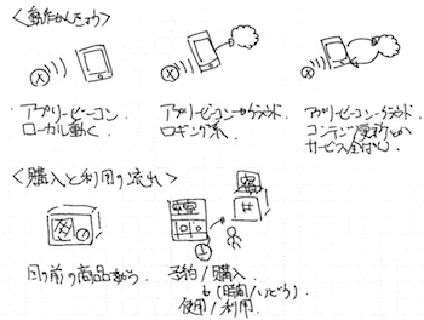 <動作かんきょう>
アプリービーコン
ローカル動く
アプリービーコンークラウド
ロギング系
アプリービーコンークラウド
コンテンツ更新とか
サービス全般
<購入と利用の流れ>
目の前の商品
予約/購入
(時間/いどう)
使用/利用